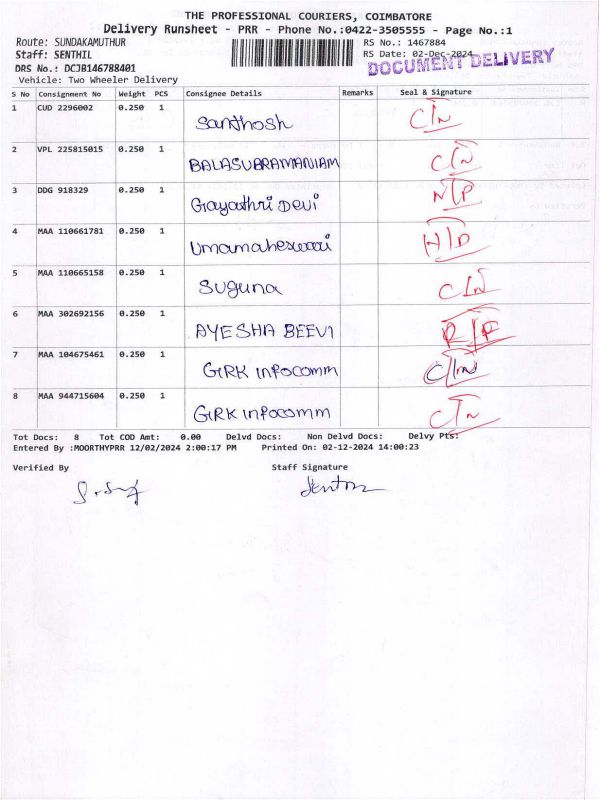 THE PROFESSIONAL COURIERS, COIMBATORE
Delivery Runsheet - PRR - Phone No.:0422-3505555 - Page No.:1
Route: SUNDAKAMUTHUR
RS No.: 1467884
Staff: SENTHIL
RS Date: 02-Dec-2024
DOCUMENT DELIVERY
DRS No.: DCJB146788401
Vehicle: Two Wheeler Delivery
S No Consignment No Weight PCS Consignee Details Remarks Seal & Signature
1 CUD 2296002 0.250 1 Santhosh C/N
2 VPL 225815015 0.250 1 BALASUBRAMANIAM C/N
3 DDG 918329 0.250 1 Gayathri Devi N/P
4 MAA 110661781 0.250 1 Umamaheswari H/D
5 MAA 110665158 0.250 1 Suguna C/N
6 MAA 302692156 0.250 1 AYESHA BEEVI R/F
7 MAA 104675461 0.250 1 GRK infocomm C/N
8 MAA 944715604 0.250 1 GRK infocomm C/N
Tot Docs: 8 Tot COD Amt: 0.00 Delvd Docs: Non Delvd Docs: Delvy Pts:
Entered By :MOORTHYPRR 12/02/2024 2:00:17 PM Printed On: 02-12-2024 14:00:23
Verified By Staff Signature